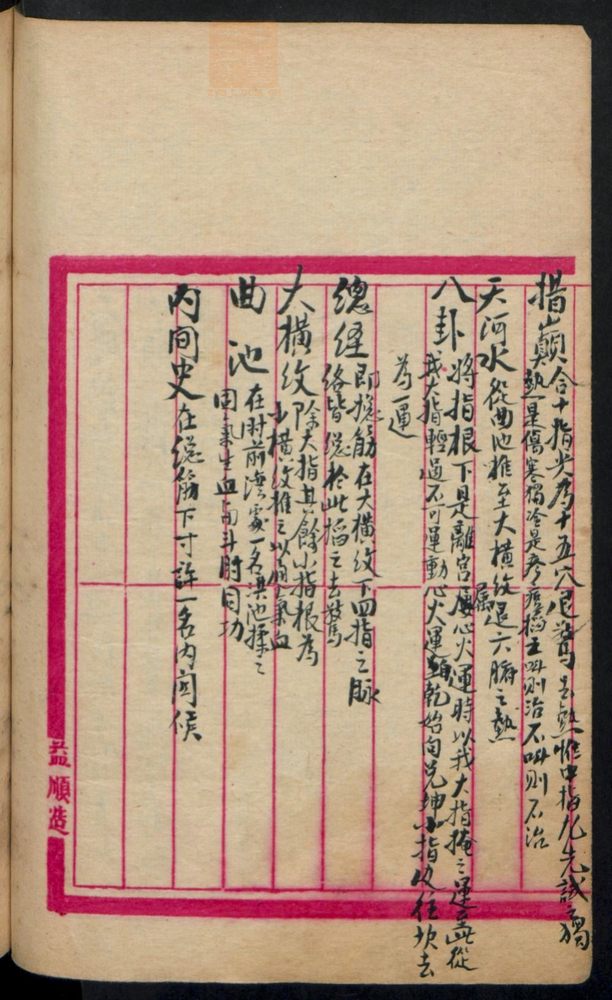 指巔合十指尖為十五穴退驚去熱惟中指尤先試之獨
熱是傷寒獨冷是疹痘掐主叫則治不叫則不治
天河水從曲池推至大橫紋退六腑之熱
八卦將指根下是離宮屬心火運時以我大指掩之運至此從
我大指輕過不可運動心火運乾始向兌坤小指及往坎去
為一運
總經即總筋在大橫紋下四指之脉
絡皆總於此掐之去驚
大橫紋除大指其餘小指根為
小橫紋推之以通氣血
曲池在肘前灣處一名洪池揉之
固氣生血與斗肘同功
內間史在總筋下寸許一名內間侯
益順造